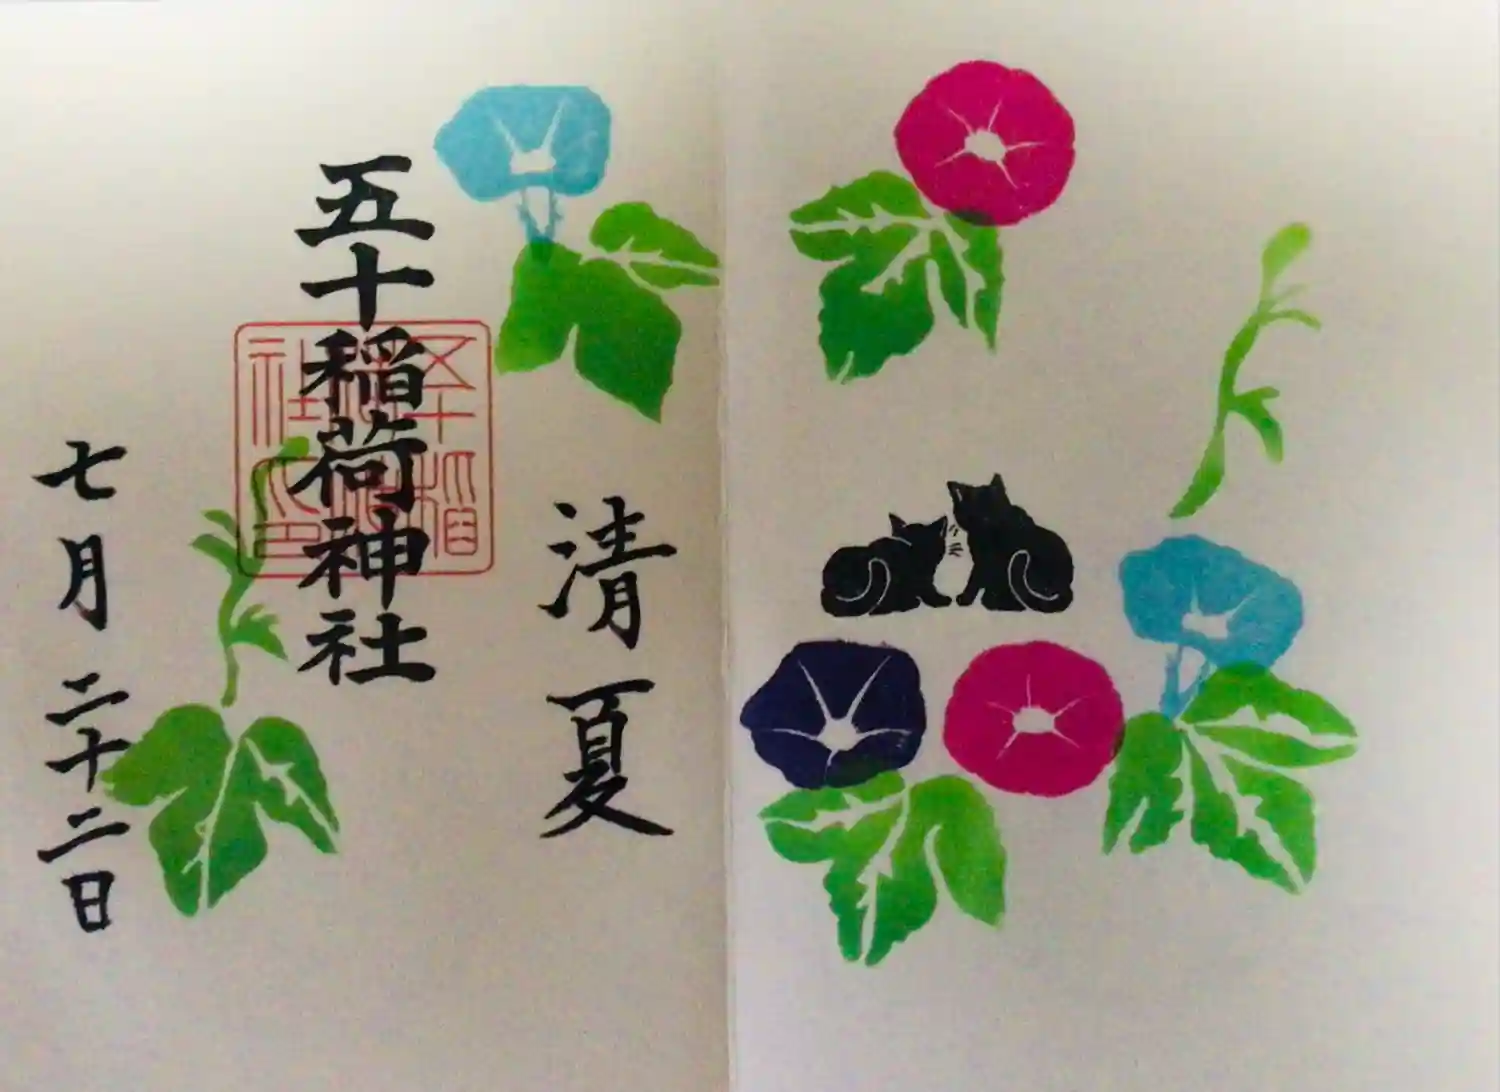 清夏
五十稲荷神社
五十稲荷神社印
七月二十二日